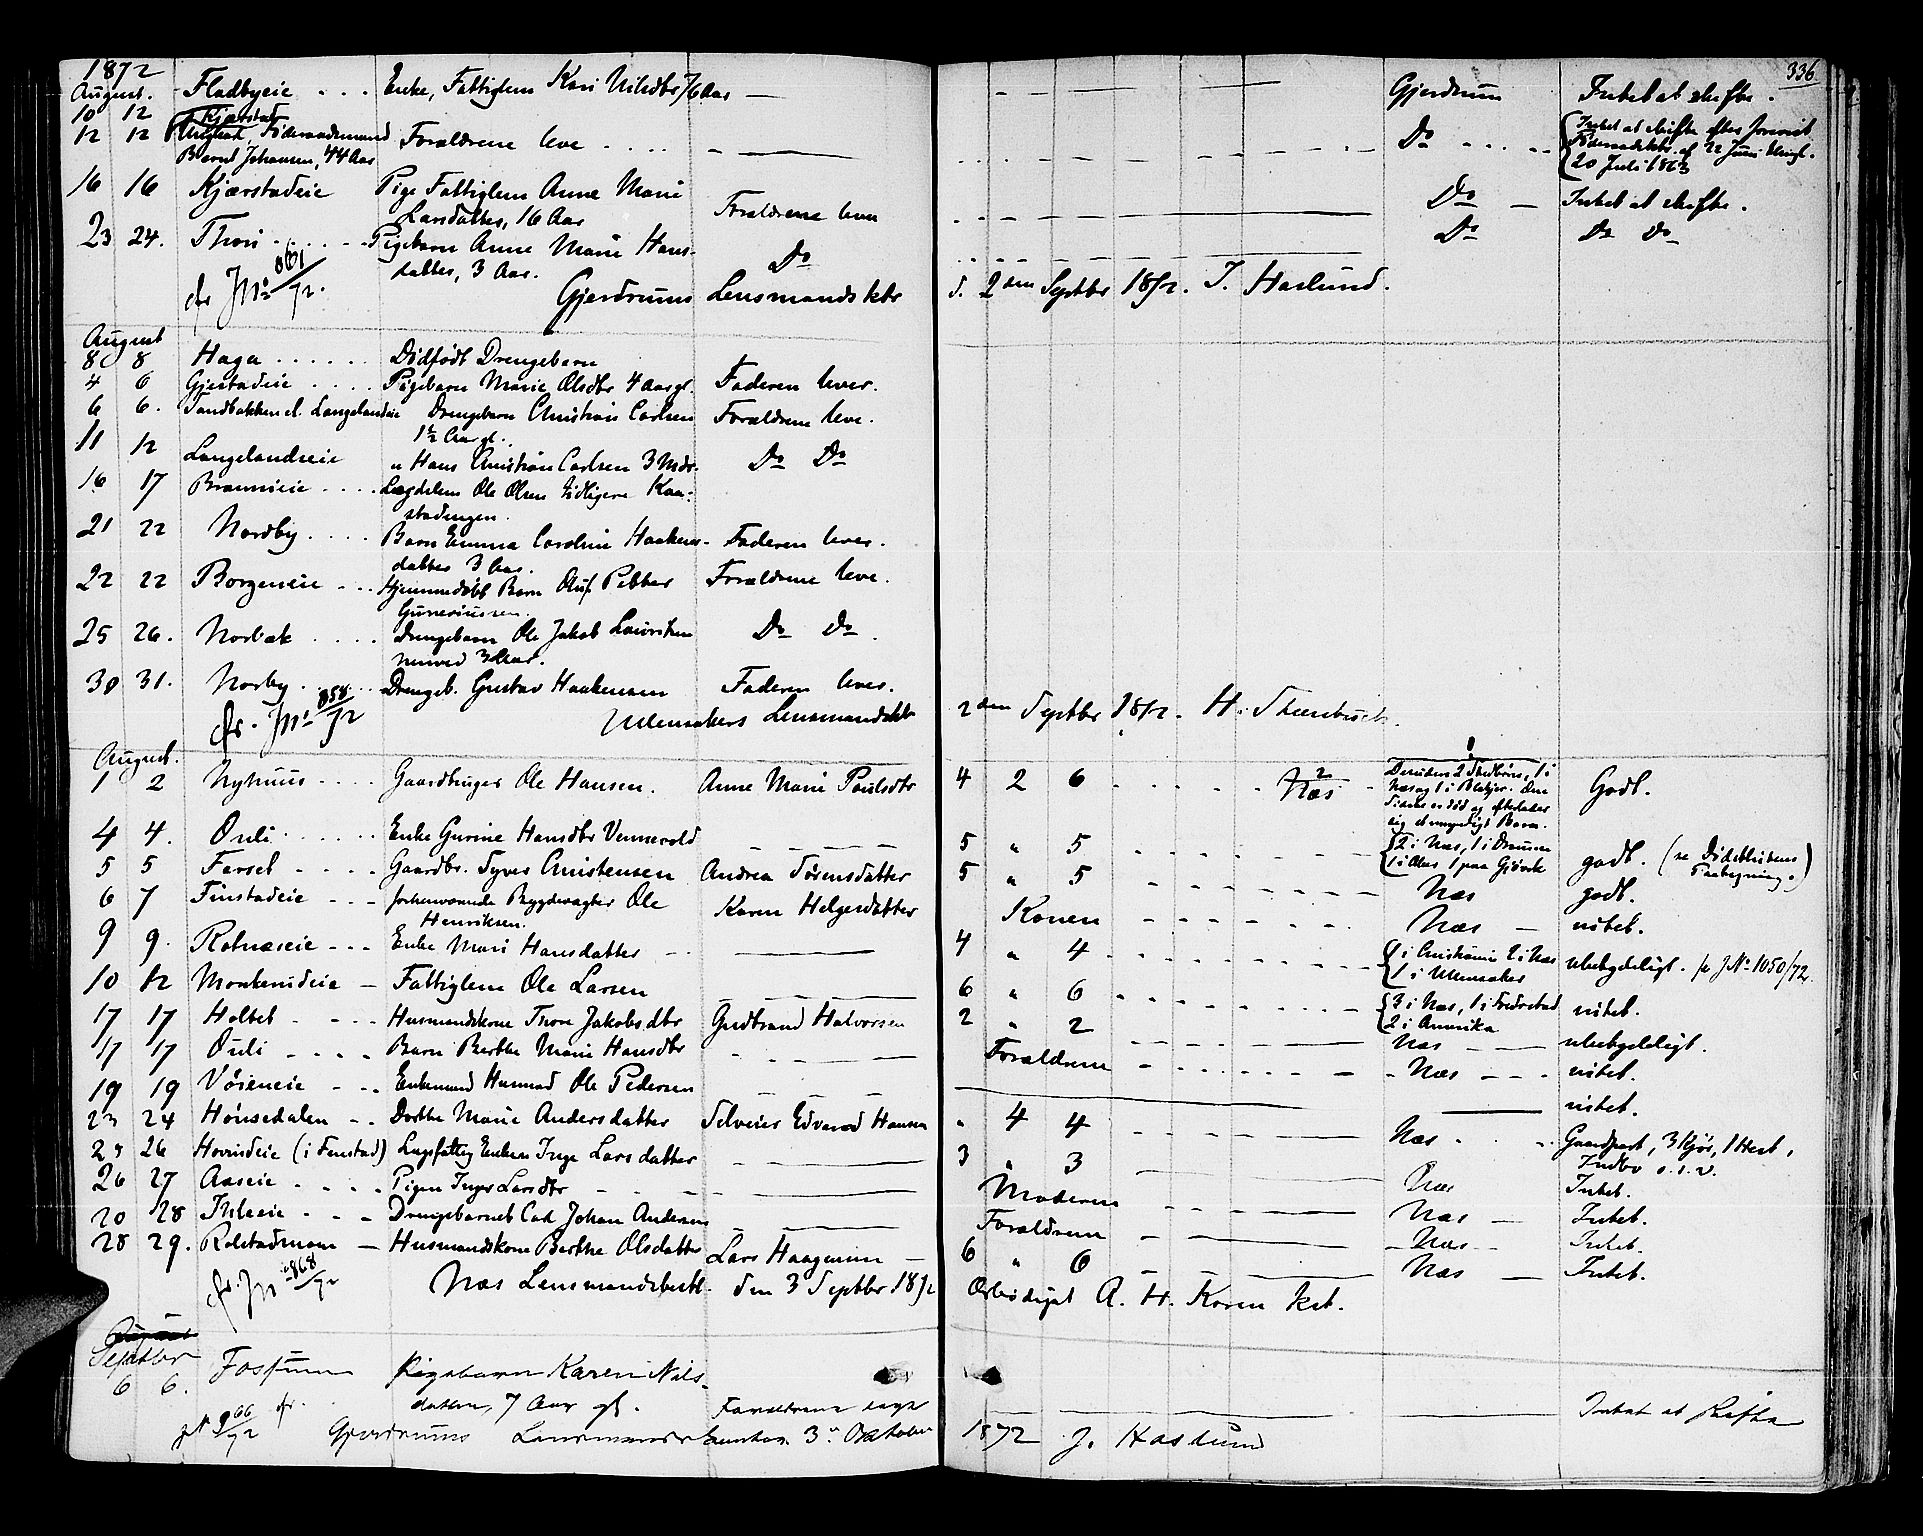 336
1872
August.
10 12 Fladbyeie . . . Enke, Fattiglem Kari Nilsdtr 76 Aar — Gjerdrum Intet at skifte.
12 12 Kjærstad
Ungland, Føderaadsmand Forældrene leve . . . . Do . . . . Intet at skifte efter forevist
Bernt Johansen, 44 Aar Føderaadskbr. af 22 Juni thingl.
20 Juli 1863
16 16 Kjærstadeie Pige Fattiglem Anne Marie
Larsdatter, 16 Aar Forældrene leve Do — Intet at skifte.
23 24. Thori . . . . . Pigebarn Anne Marie Hans-
datter, 3 Aar. Do Do Do Do
cfr JNo 861/72. Gjerdrums Lensmandsktr d. 2den Septbr 1872. J. Haslund.
August
8 8 Haga . . . . . . Dødfødt Drengebarn
4 6 Gjestadeie . . . . Pigebarn Marie Olsdtr 4 Aar gl. Faderen lever.
6 6. Sandbakken u. Langelandeie Drengebarn Christian Carlsen Forældrene leve.
1½ Aar gl.
11 12 Langelandseie " Hans Christian Carlsen 3 Mdr. Do Do
16 17 Braunieie . . . . Lægdslem Ole Olsen tidligere Kaa-
stadengen.
21 22 Nordby . . . . Barn Emma Caroline Haakens- Faderen lever.
datter 3 Aar.
22 22 Borgeneie . . . Hjemmedøbt Barn Oluf Petter Forældrene leve.
Guneriussen.
25 26. Norbak . . . . Drengebarn Ole Jakob Lauritsen Do Do.
30 31. Norby . . . . . Drengeb. Gustav Haakensen Faderen lever.
cfr. JNo 858/72 Ullensakers Lensmandsktr 2den Septbr 1872. H.
August.
1 2 Nyhuus . . . . Gaardbruger Ole Hansen. Anne Marie Poulsdtr 4 2 6 . . . . . Næs Desuden 2 Stedbørn, 1 i Godt.
Næs og 1 i Blakjer. Den
sidste er død og efterlader
sig et umyndigt Barn.
4 4. Ouli . . . . . . Enke Gurine Hansdtr Vennevold 5 " 5 2 i Næs, 1 i Drammen
1 i Aas 1 paa Gjøvik godt. (se Dødsblikens
Paategning.)
5 5 Farset . . . . Gaardbr. Syver Christensen Andrea Sørensdatter 5 " 5 Næs godt.
6 7 Finstadeie . . . forhenværende Bygdevagter Ole Karen Helgesdatter Konen Næs — intet.
Henriksen.
9 9. Rotnæseie . . . Enke Mari Hansdatter 4 " 4 1 i Christiania 2 i Næs
1 i Ullensaker ubetydeligt. se JNo 1050/72.
10 12 Monkerudeie — Fattiglem Ole Larsen 6 " 6 3 i Næs, 1 i Fredrikstad
2 i Amerika intet.
17 17 Holtet . . . . Husmandskone Thore Jakobsdtr Gudbrand Halvorsen 2 " 2 Næs ubetydeligt.
17 17 Ouli . . . . Barn Berthe Marie Hansdtr Forældrene Næs intet.
19 19 Vøieneie . . . Enkemand Husmand Ole Pedersen intet.
23 24 Hønsedalen . . Dorthe Marie Andersdatter Selveier Edvard Hansen " 4 4 Næs . Gaardpart, 3 Kjør, 1 Hest,
Indbo o.s.v.
25 26 Hovindeie (i Fenstad) Lægsfattig Enken Inge Larsdatter 3 " 3 Næs Intet.
26 27 Aaseie . . . . Pigen Inger Larsdtr Moderen Næs — Intet.
20 28 Ihleeie . . . Drengebarnet Carl Johan Andersen Forældrene Næs Intet.
28 29. Rolstadmoen — Husmandskone Berthe Olsdatter Lars Haagensen — 6 " 6 Næs — Intet.
cfr. JNo 868/72 Næs Lensmandsbestl. den 3 Septbr 1872 Ærbødigst A. H. Koren kst.
August
Septbr
6 6. Fossum Pigebarn Karen Nils-
datter, 7 Aar gl. Forældrene leve Intet at skifte
JN 966/72 cfr. Gjerdrums Lensmandskontor 3. Oktober 1872 J. Haslund